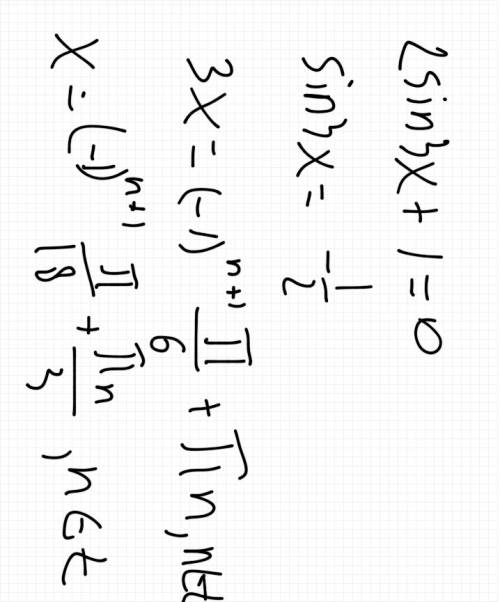 2sin3x + 1 = 0
sin3x = -1/2
3x = (-1)^(n+1) π/6 + πn, n∈Z
x = (-1)^(n+1) π/18 + πn/3, n∈Z